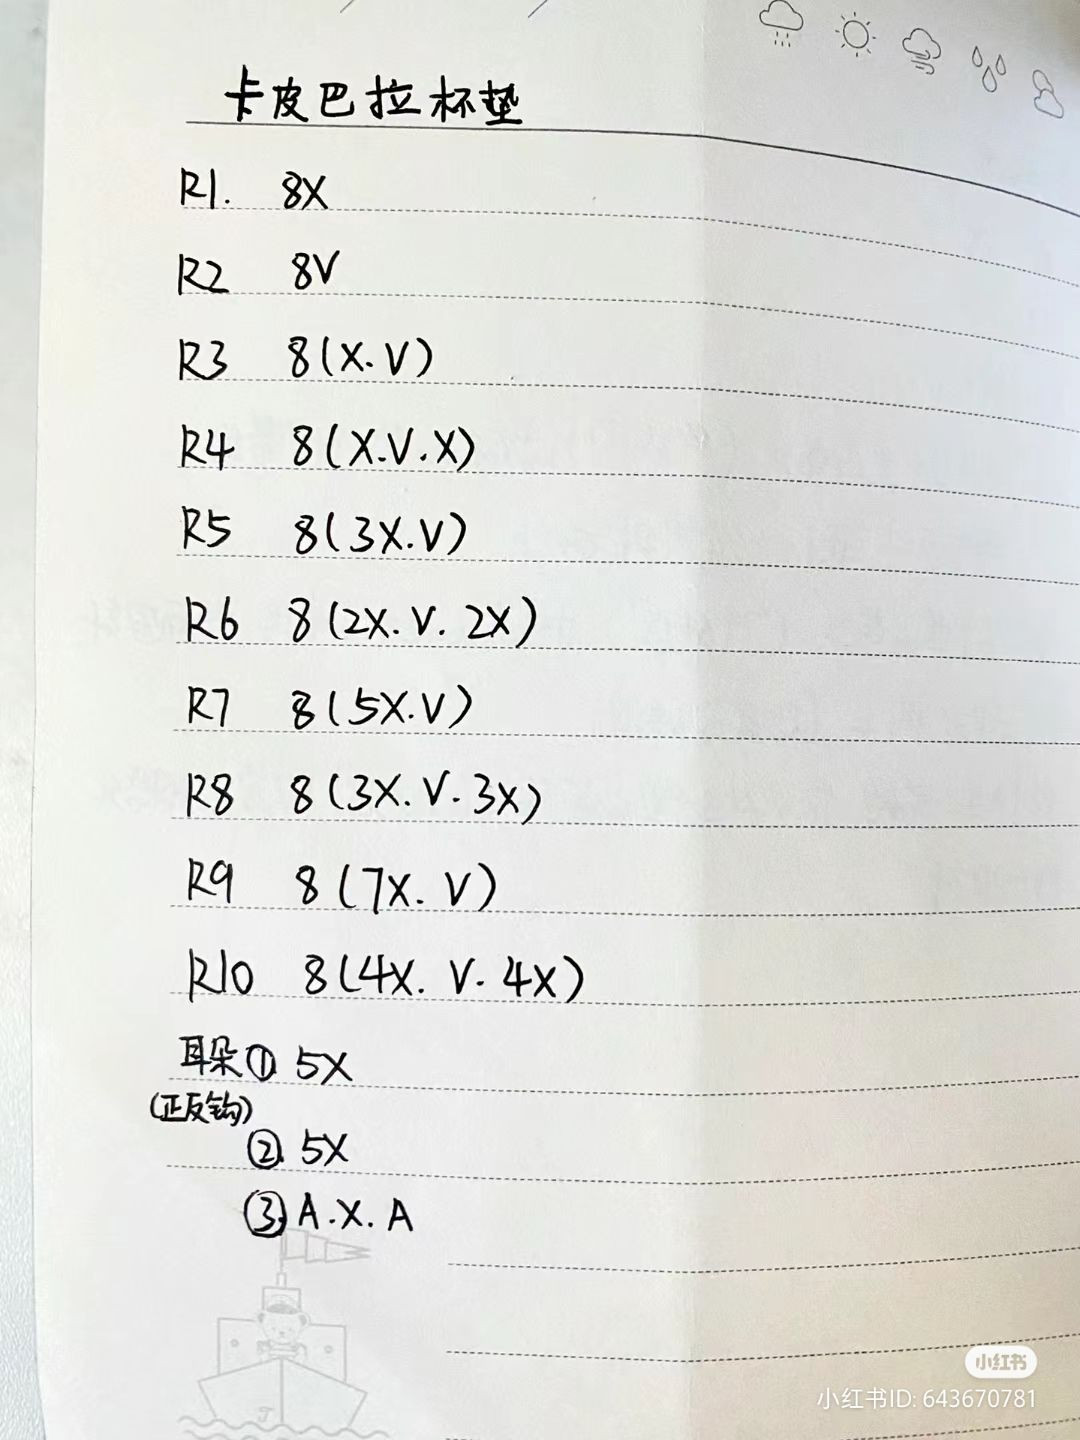 卡皮巴拉杯垫
R1. 8X
R2 8V
R3 8(X.V)
R4 8(X.V.X)
R5 8(3X.V)
R6 8(2X.V.2X)
R7 8(5X.V)
R8 8(3X.V.3X)
R9 8(7X.V)
R10 8(4X.V.4X)
耳朵① 5X
(正反钩)
② 5X
③ A.X.A
小红书
小红书ID: 643670781